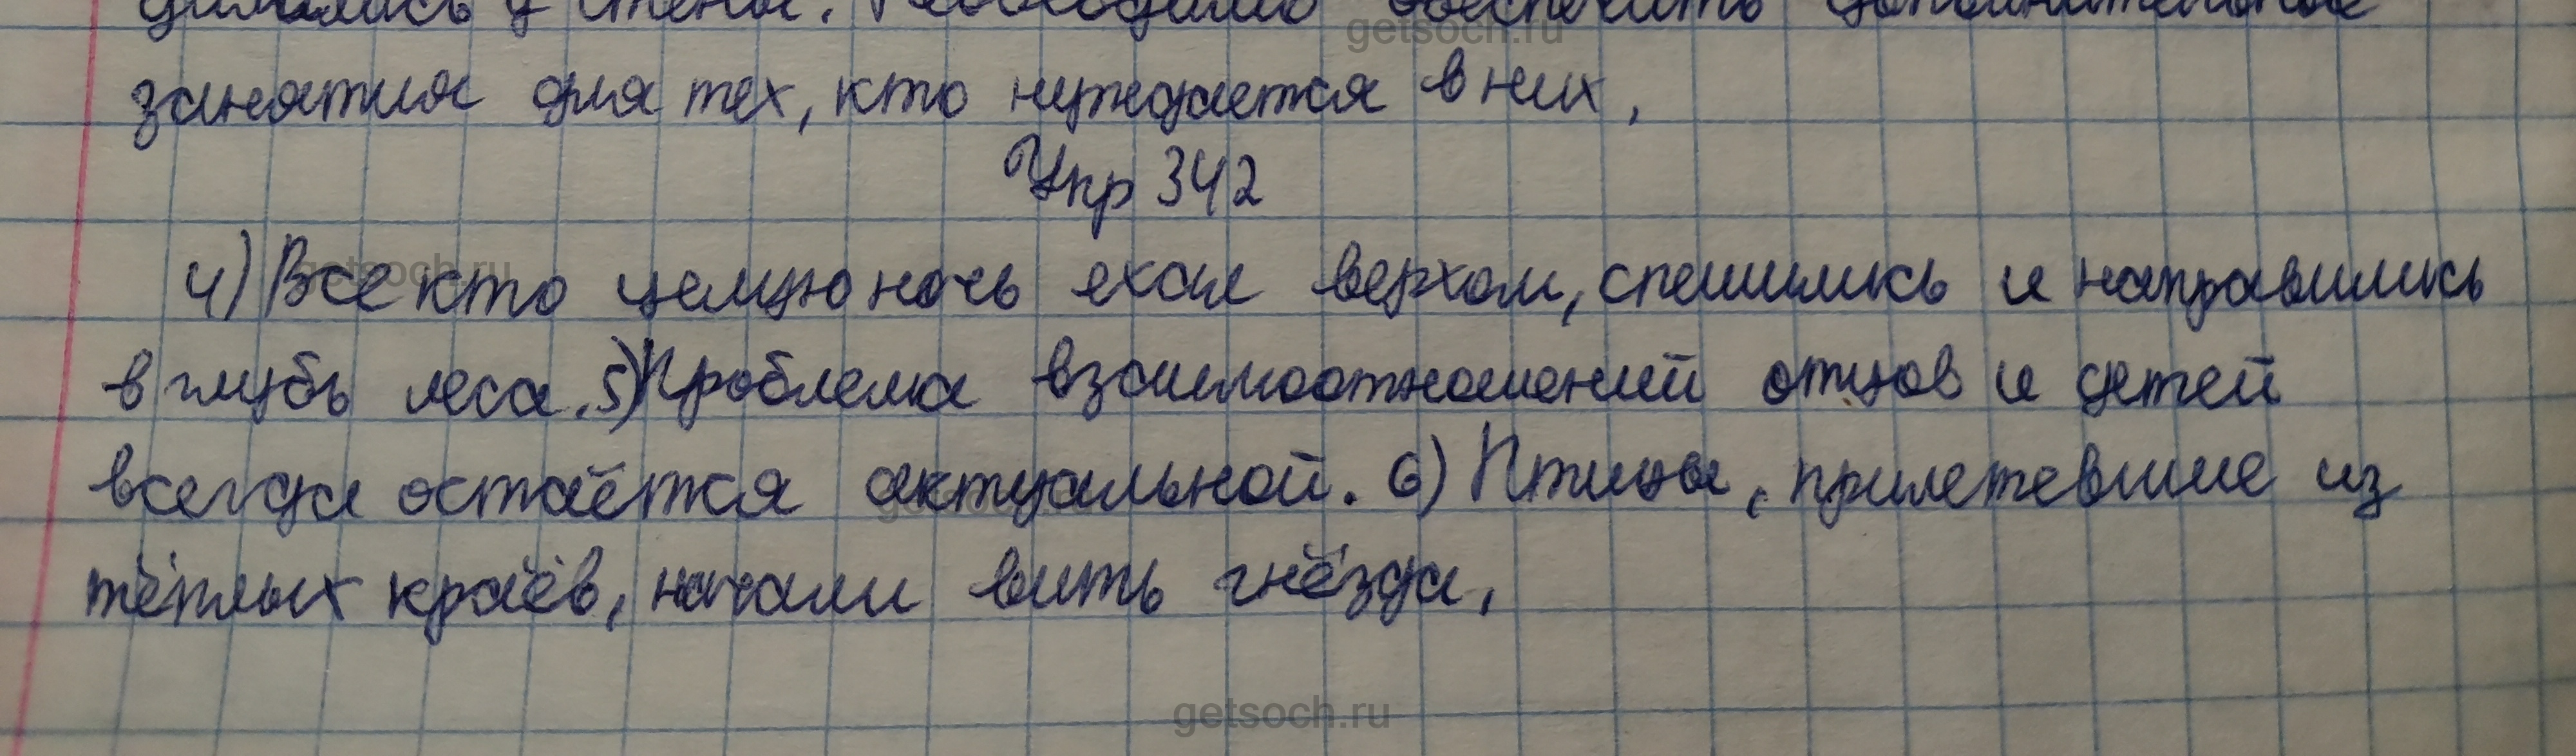 у стены. Необходимо обеспечить дополнительные
занятия для тех, кто нуждается в них.
Упр 342
4) Все кто целую ночь ехал верхом, спешились и направились
в глубь леса. 5) Проблема взаимоотношений отцов и детей
всегда остаётся актуальной. 6) Птицы, прилетевшие из
тёплых краёв, начали вить гнёзда.
getsoch.ru
getsoch.ru
getsoch.ru
getsoch.ru